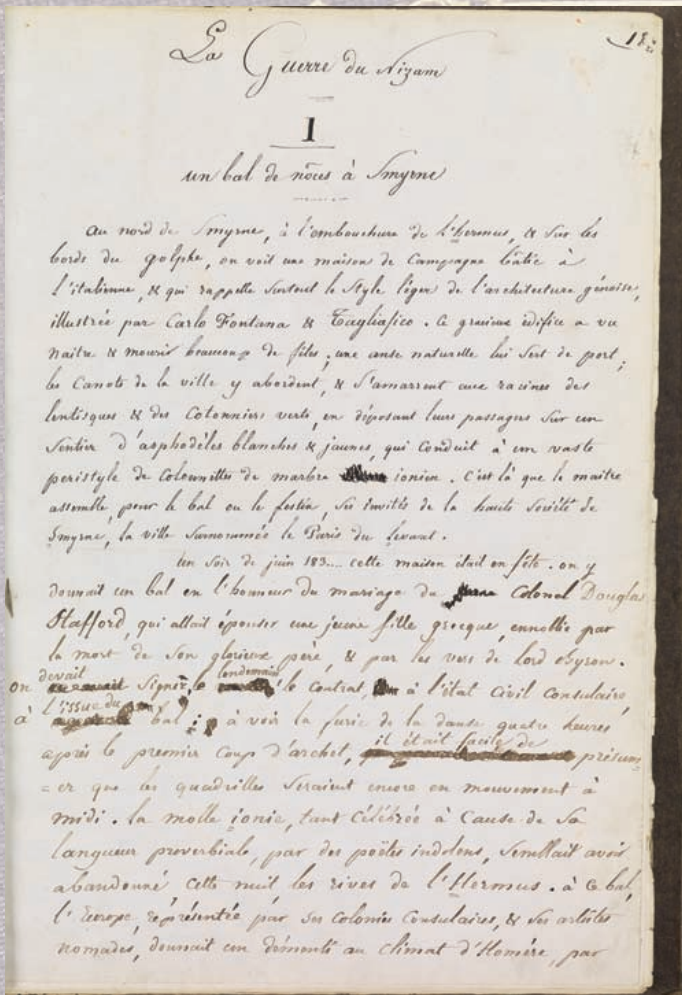 18
La Guerre du Nizam
1
un bal de nôces à Smyrne
au nord de Smyrne, à l'embouchure de l'hermus, & sur les
bords du golphe, on voit une maison de campagne bâtie à
l'italienne, & qui rappelle surtout le style léger de l'architecture génoise,
illustrée par Carlo Fontana & Tagliafico. Ce gracieux édifice a vu
naitre & mourir beaucoup de fêtes ; une anse naturelle lui sert de port ;
les canots de la ville y abordent, & s'amarrent aux racines des
lentisques & des cotonniers verts, en déposant leurs passagers sur un
sentier d'asphodèles blanches & jaunes, qui conduit à un vaste
peristyle de colonnettes de marbre ionien. C'est là que le maitre
assemble, pour le bal ou le festin, ses invités de la haute société de
Smyrne, la ville surnommée le Paris du levant.
Un soir de juin 183.... cette maison était en fête. on y
donnait un bal en l'honneur du mariage du Colonel Douglas
Stafford, qui allait épouser une jeune fille grecque, ennoblie par
la mort de son glorieux père, & par les vers de lord Byron.
on devait signer, le lendemain, le contrat à l'état civil consulaire,
à l'issue du bal ; à voir la furie de la danse quatre heures
après le premier coup d'archet, il était facile de présum=
=er que les quadrilles seraient encore en mouvement à
midi. la molle ionie, tant célébrée à cause de sa
langueur proverbiale, par des poëtes indolens, semblait avoir
abandonné cette nuit les rives de l'Hermus. à ce bal,
l'Europe, représentée par ses colonies consulaires, & ses artistes
nomades, donnait un démenti au climat d'Homère, par